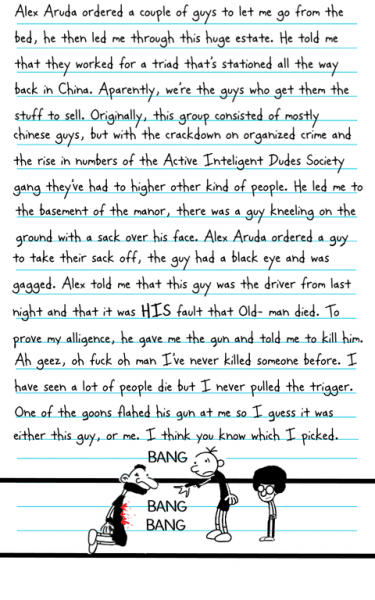 Alex Aruda ordered a couple of guys to let me go from the
bed, he then led me through this huge estate. He told me
that they worked for a triad that's stationed all the way
back in China. Aparently, we're the guys who get them the
stuff to sell. Originally, this group consisted of mostly
chinese guys, but with the crackdown on organized crime and
the rise in numbers of the Active Inteligent Dudes Society
gang they've had to higher other kind of people. He led me to
the basement of the manor, there was a guy kneeling on the
ground with a sack over his face. Alex Aruda ordered a guy
to take their sack off, the guy had a black eye and was
gagged. Alex told me that this guy was the driver from last
night and that it was HIS fault that Old- man died. To
prove my alligence, he gave me the gun and told me to kill him.
Ah geez, oh fuck oh man I've never killed someone before. I
have seen a lot of people die but I never pulled the trigger.
One of the goons flahed his gun at me so I guess it was
either this guy, or me. I think you know which I picked.
BANG
BANG
BANG